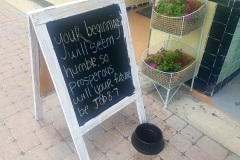 your beginning
will seem
humble so
prosperous
will your future
be Job 8:7